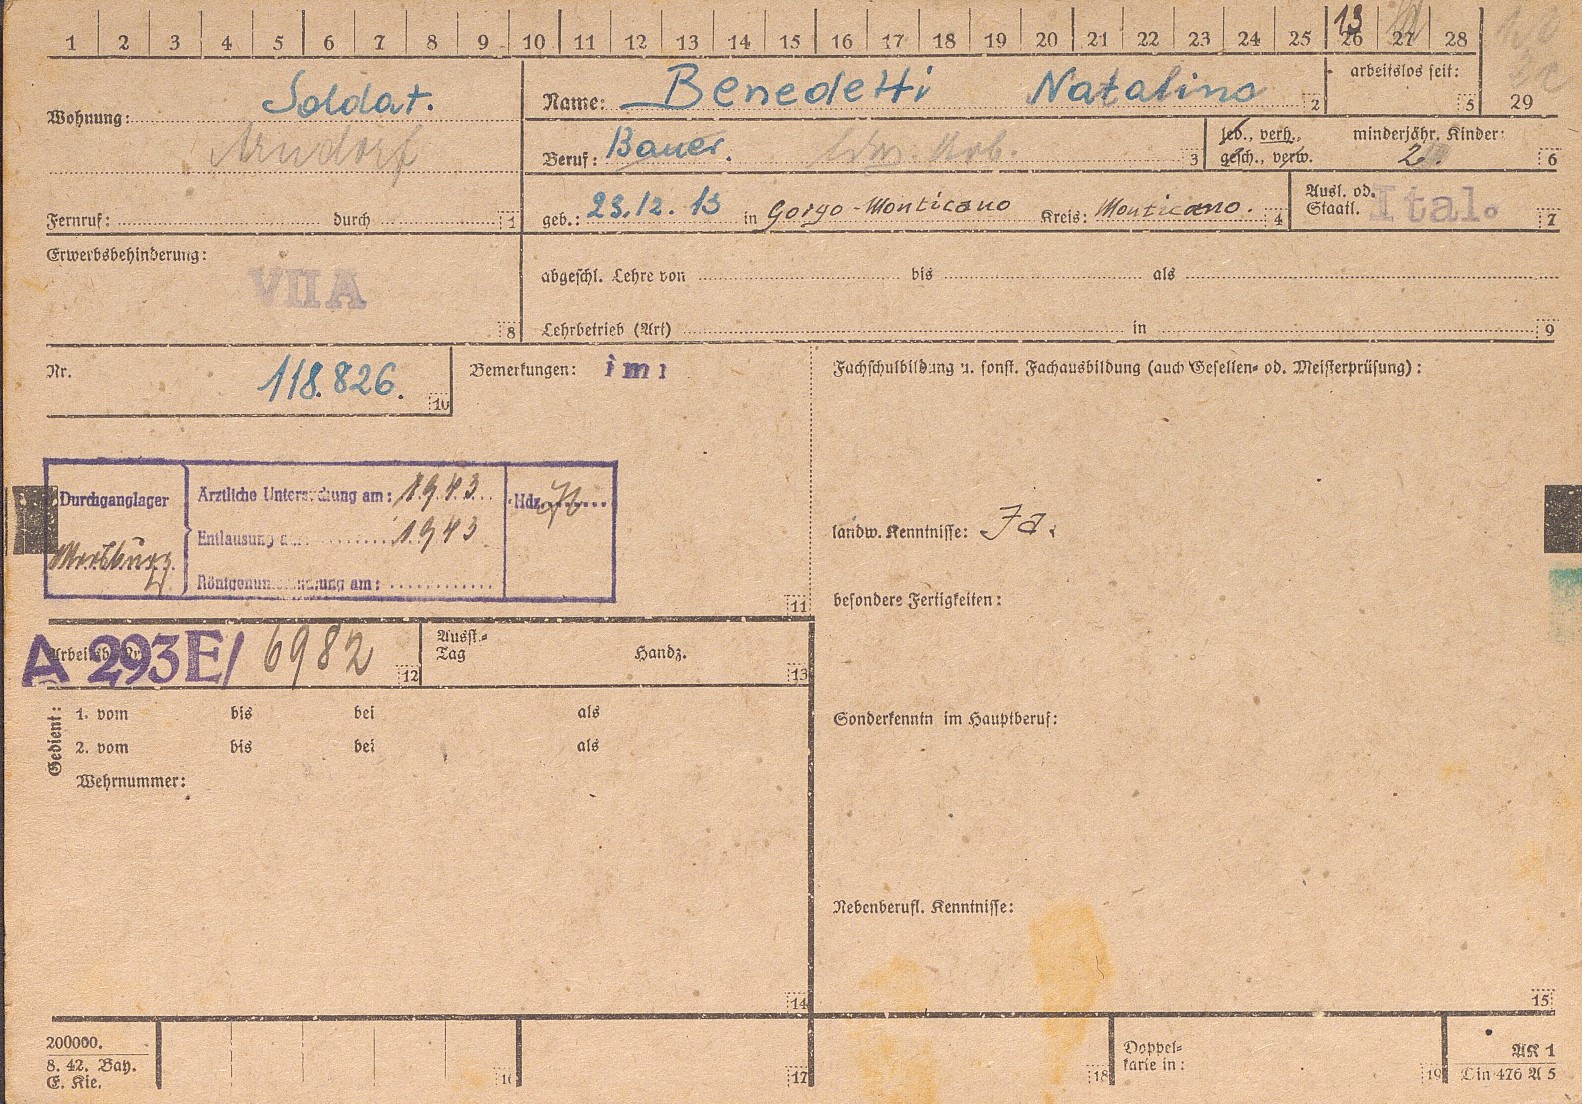 1 2 3 4 5 6 7 8 9 10 11 12 13 14 15 16 17 18 19 20 21 22 23 24 25 26 27 28 29
13
Wohnung: Soldat.
Arndorf
Fernruf: durch 1
Name: Benedetti Natalino 2
arbeitslos seit: 5
Beruf: Bauer. Ldw. Arb. 3
led., verh., gesch., verw.
minderjähr. Kinder: 2 6
geb.: 23.12.13 in Gorgo-Monticano Kreis: Monticano. 4
Ausl. od. Staatl. Ital. 7
Erwerbsbehinderung:
VII A
8
abgeschl. Lehre von bis als
Lehrbetrieb (Art) in 9
Nr. 118.826. 10
Bemerkungen: imi
Fachschulbildung u. sonst. Fachausbildung (auch Gesellen- od. Meisterprüfung):
Durchganglager
Ärztliche Untersuchung am: 1943
Entlausung am: 1943
Röntgenuntersuchung am:
Hdz.
11
landw. Kenntnisse: Ja.
besondere Fertigkeiten:
Arbeitsb. Nr. A 293E/ 6982 12
Ausst.-Tag Handz. 13
Gedient:
1. vom bis bei als
2. vom bis bei als
Wehrnummer:
Sonderkenntn im Hauptberuf:
Nebenberufl. Kenntnisse:
14
15
200000.
8. 42. Bay.
E. Kie.
16
17
18
Doppel-
karte in:
19
AK 1
Din 476 A 5